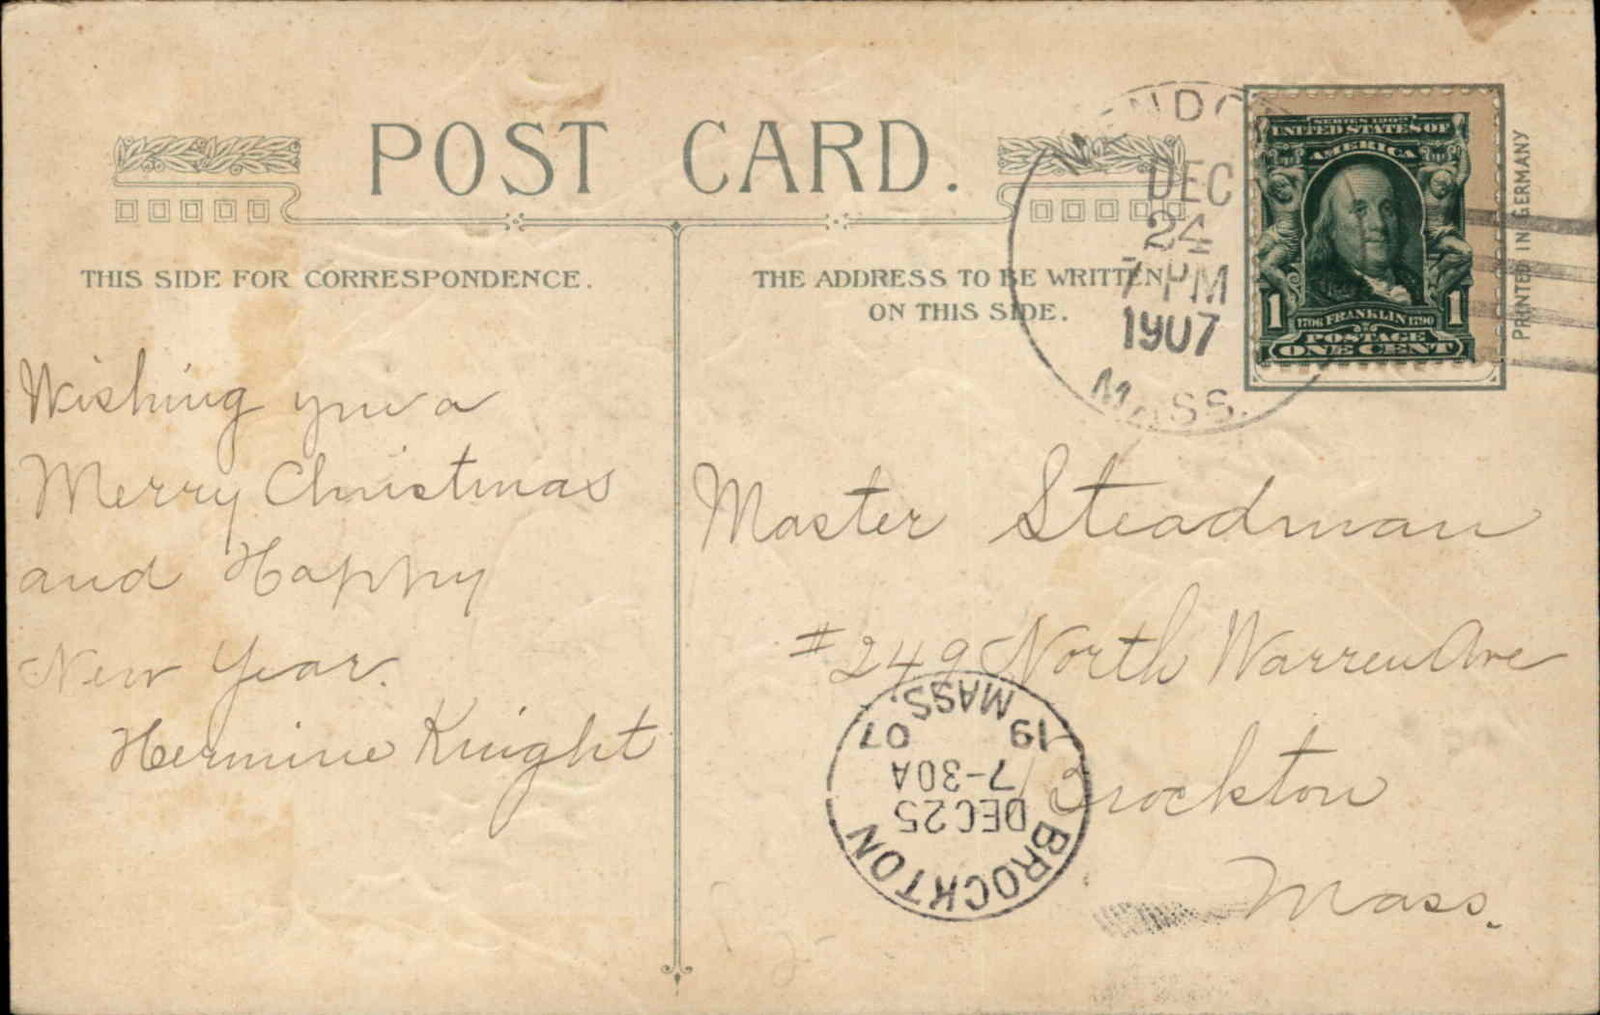 POST CARD.
THIS SIDE FOR CORRESPONDENCE.
THE ADDRESS TO BE WRITTEN
ON THIS SIDE.
DEC
24
7 PM
1907
MASS.
SERIES 1902
UNITED STATES OF
AMERICA
1 1
1706 FRANKLIN 1790
POSTAGE
ONE CENT
PRINTED IN GERMANY
Wishing you a
Merry Christmas
and Happy
New Year.
Hermine Knight
Master Steadman
#249 North Warren Ave
Brockton
Mass.
BROCKTON
DEC 25
7-30A
19 07
MASS.